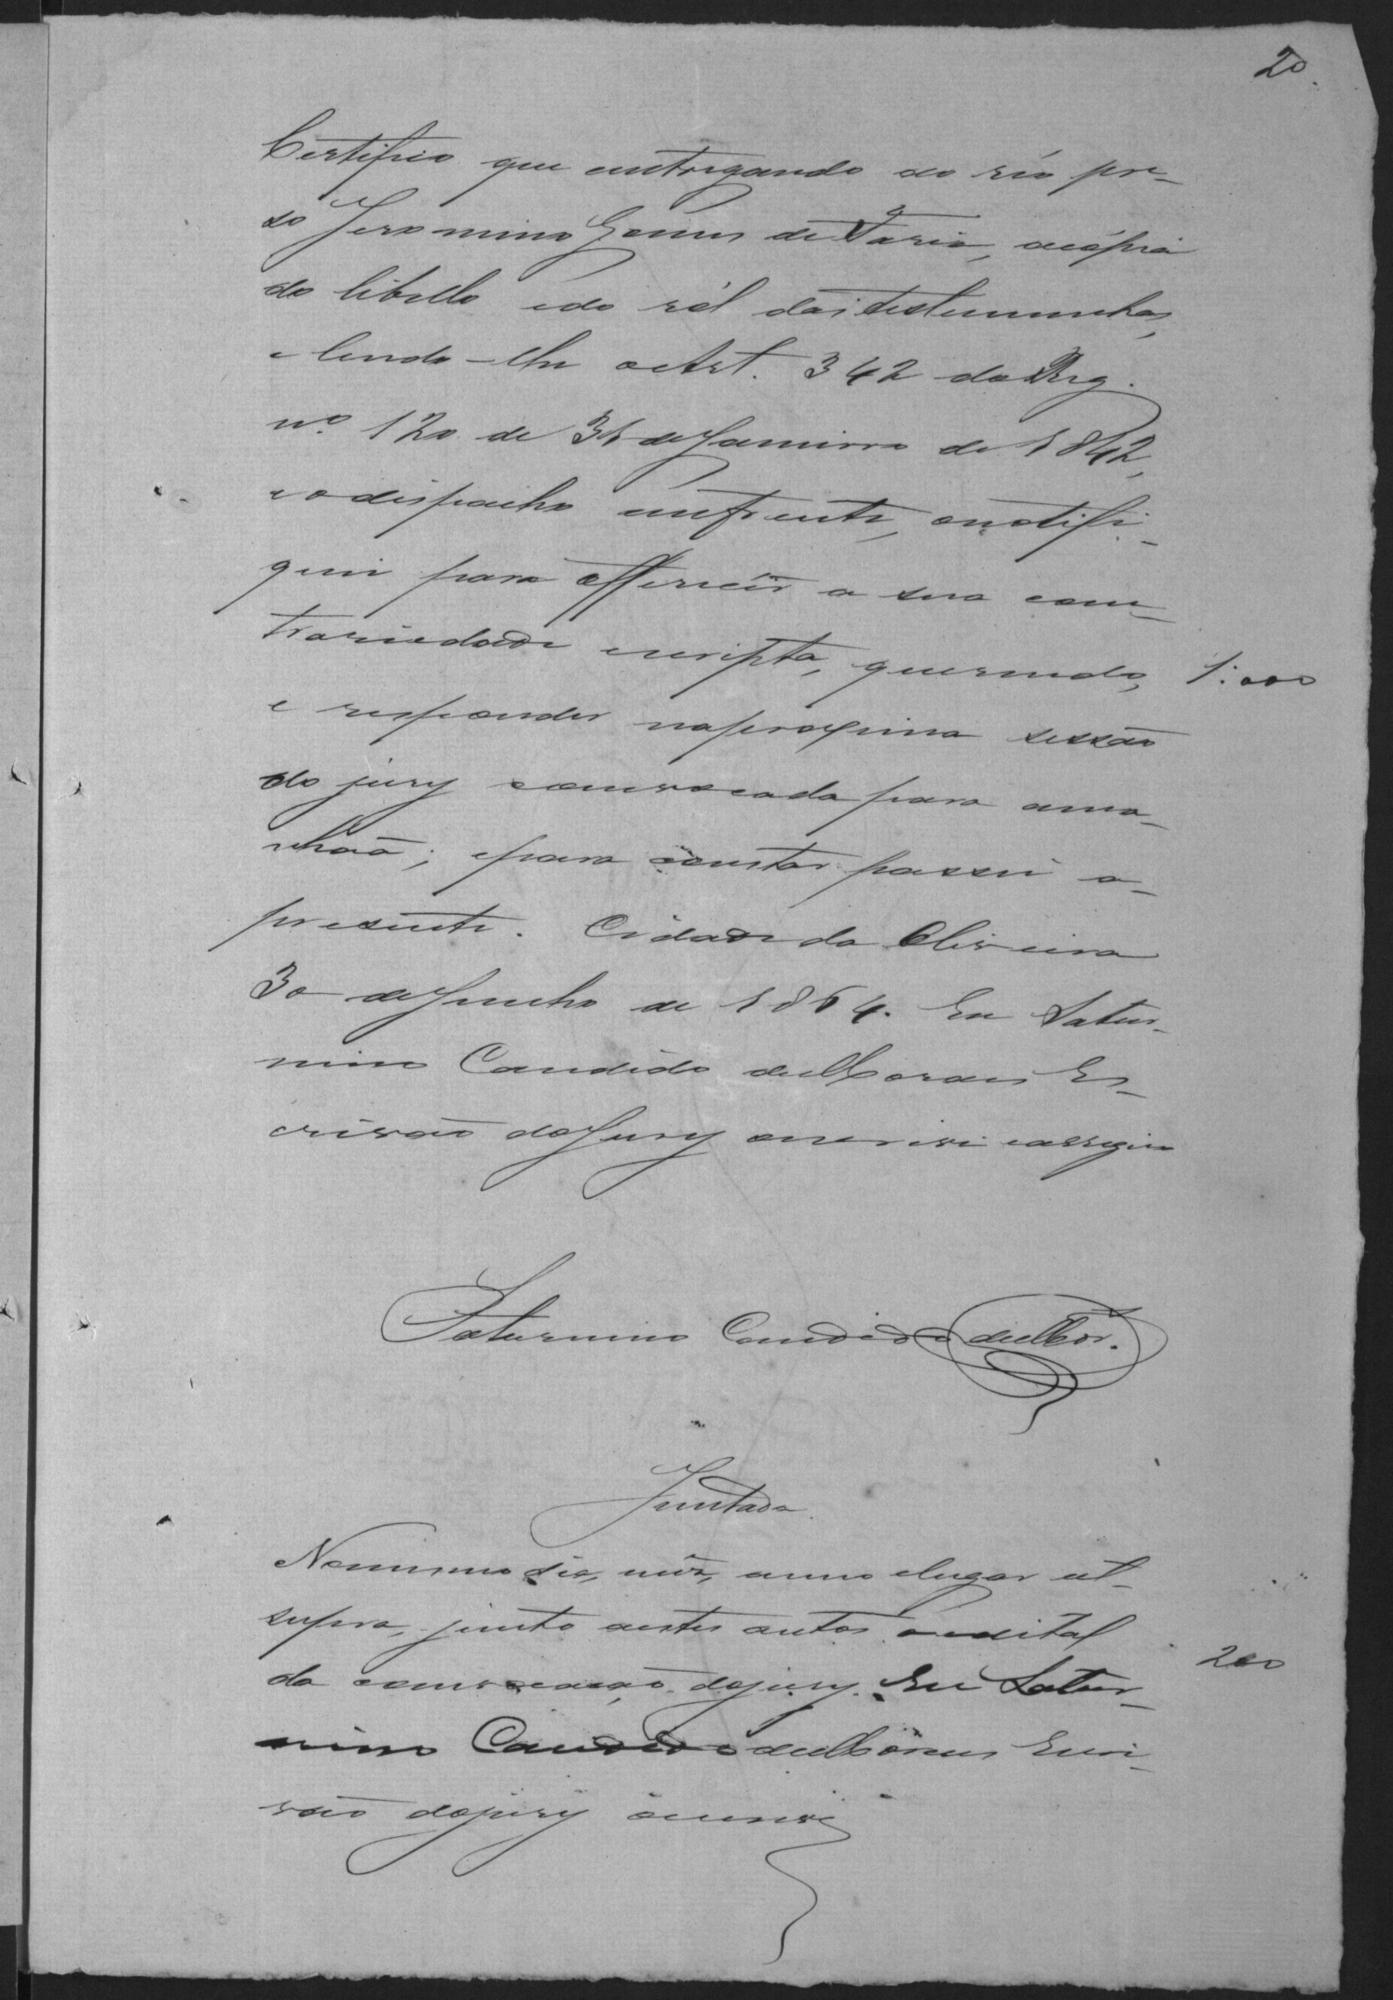 20.
Certifico que entregando ao réo pre-
so Jeronimo Gomes de Faria, a cópia
do libello e do ról das testemunhas,
e lendo-lhe o Art. 342 do Reg.
nº 120 de 31 de Janeiro de 1842,
e o despacho em frente, o notifi-
quei para offerecer a sua con-
trariedade escripta, querendo, 1:000
e responder na proxima sessão
do jury convocada para ama-
nhaã; e para constar passei o
presente. Cidade da Oliveira
30 de Junho de 1864. Eu Satur-
nino Candido de Moraes Es-
crivão do Jury o escrivi e assigno
Saturnino Candido de Mor.
Juntada
No mesmo dia, mez, anno e lugar ut
supra, junto a estes autos o edital 200
da convocação do jury. Eu Satur-
nino Candido de Moraes Escri-
vão do jury o escrivi